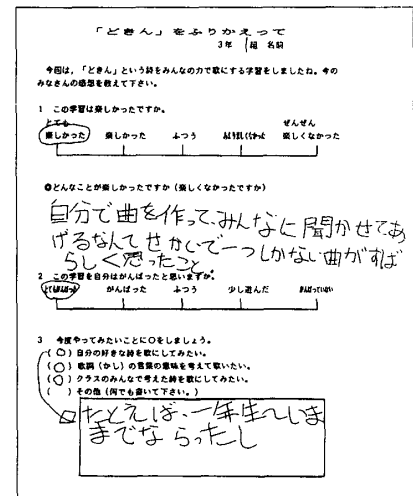 「どきん」をふりかえって
3年 1組 名前
今回は、「どきん」という詩をみんなの力で歌にする学習をしましたね。今の
みなさんの感想を教えて下さい。
1 この学習は楽しかったですか。
とても ぜんぜん
楽しかった 楽しかった ふつう あまり楽しくなかった 楽しくなかった
◎どんなことが楽しかったですか（楽しくなかったですか）
自分で曲を作って、みんなに聞かせてあ
げるなんてせかいで一つしかない曲がすば
らしく思ったこと。
2 この学習を自分はがんばったと思いますか。
とてもがんばった がんばった ふつう 少し遊んだ がんばっていない
3 今度やってみたいことに○をしましょう。
（○）自分の好きな詩を歌にしてみたい。
（○）歌詞（かし）の言葉の意味を考えて歌いたい。
（○）クラスのみんなで考えた詩を歌にしてみたい。
（ ）その他（何でも書いて下さい。）
たとえば、一年生～いま
までならったし